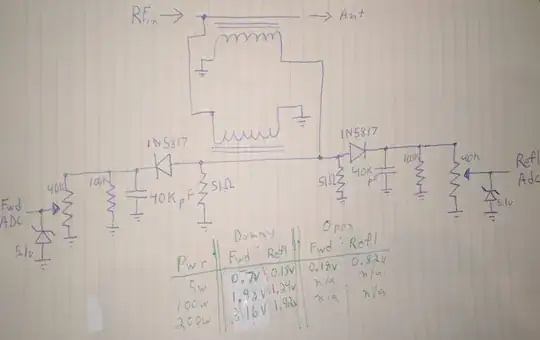 RFin → → Ant
1N5817
1N5817
40K
10K
40K pF
51Ω
51Ω
40K pF
40K
40K
Fwd
ADC
5.1v
Refl
Adc
5.1v
Dummy Open
Pwr Fwd Refl Fwd Refl
5w 0.7v 0.18v 0.18v 0.82v
100w 1.92v 1.24v n/a n/a
200w 3.16v 1.92v n/a n/a